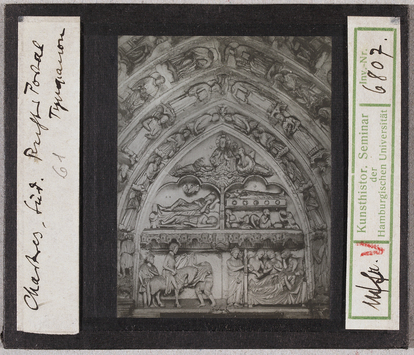 Chartres, Süd. Rechts Portal
Tympanon
61
Kunsthistor. Seminar
der
Hamburgischen Universität
Inv.-Nr.
6807.